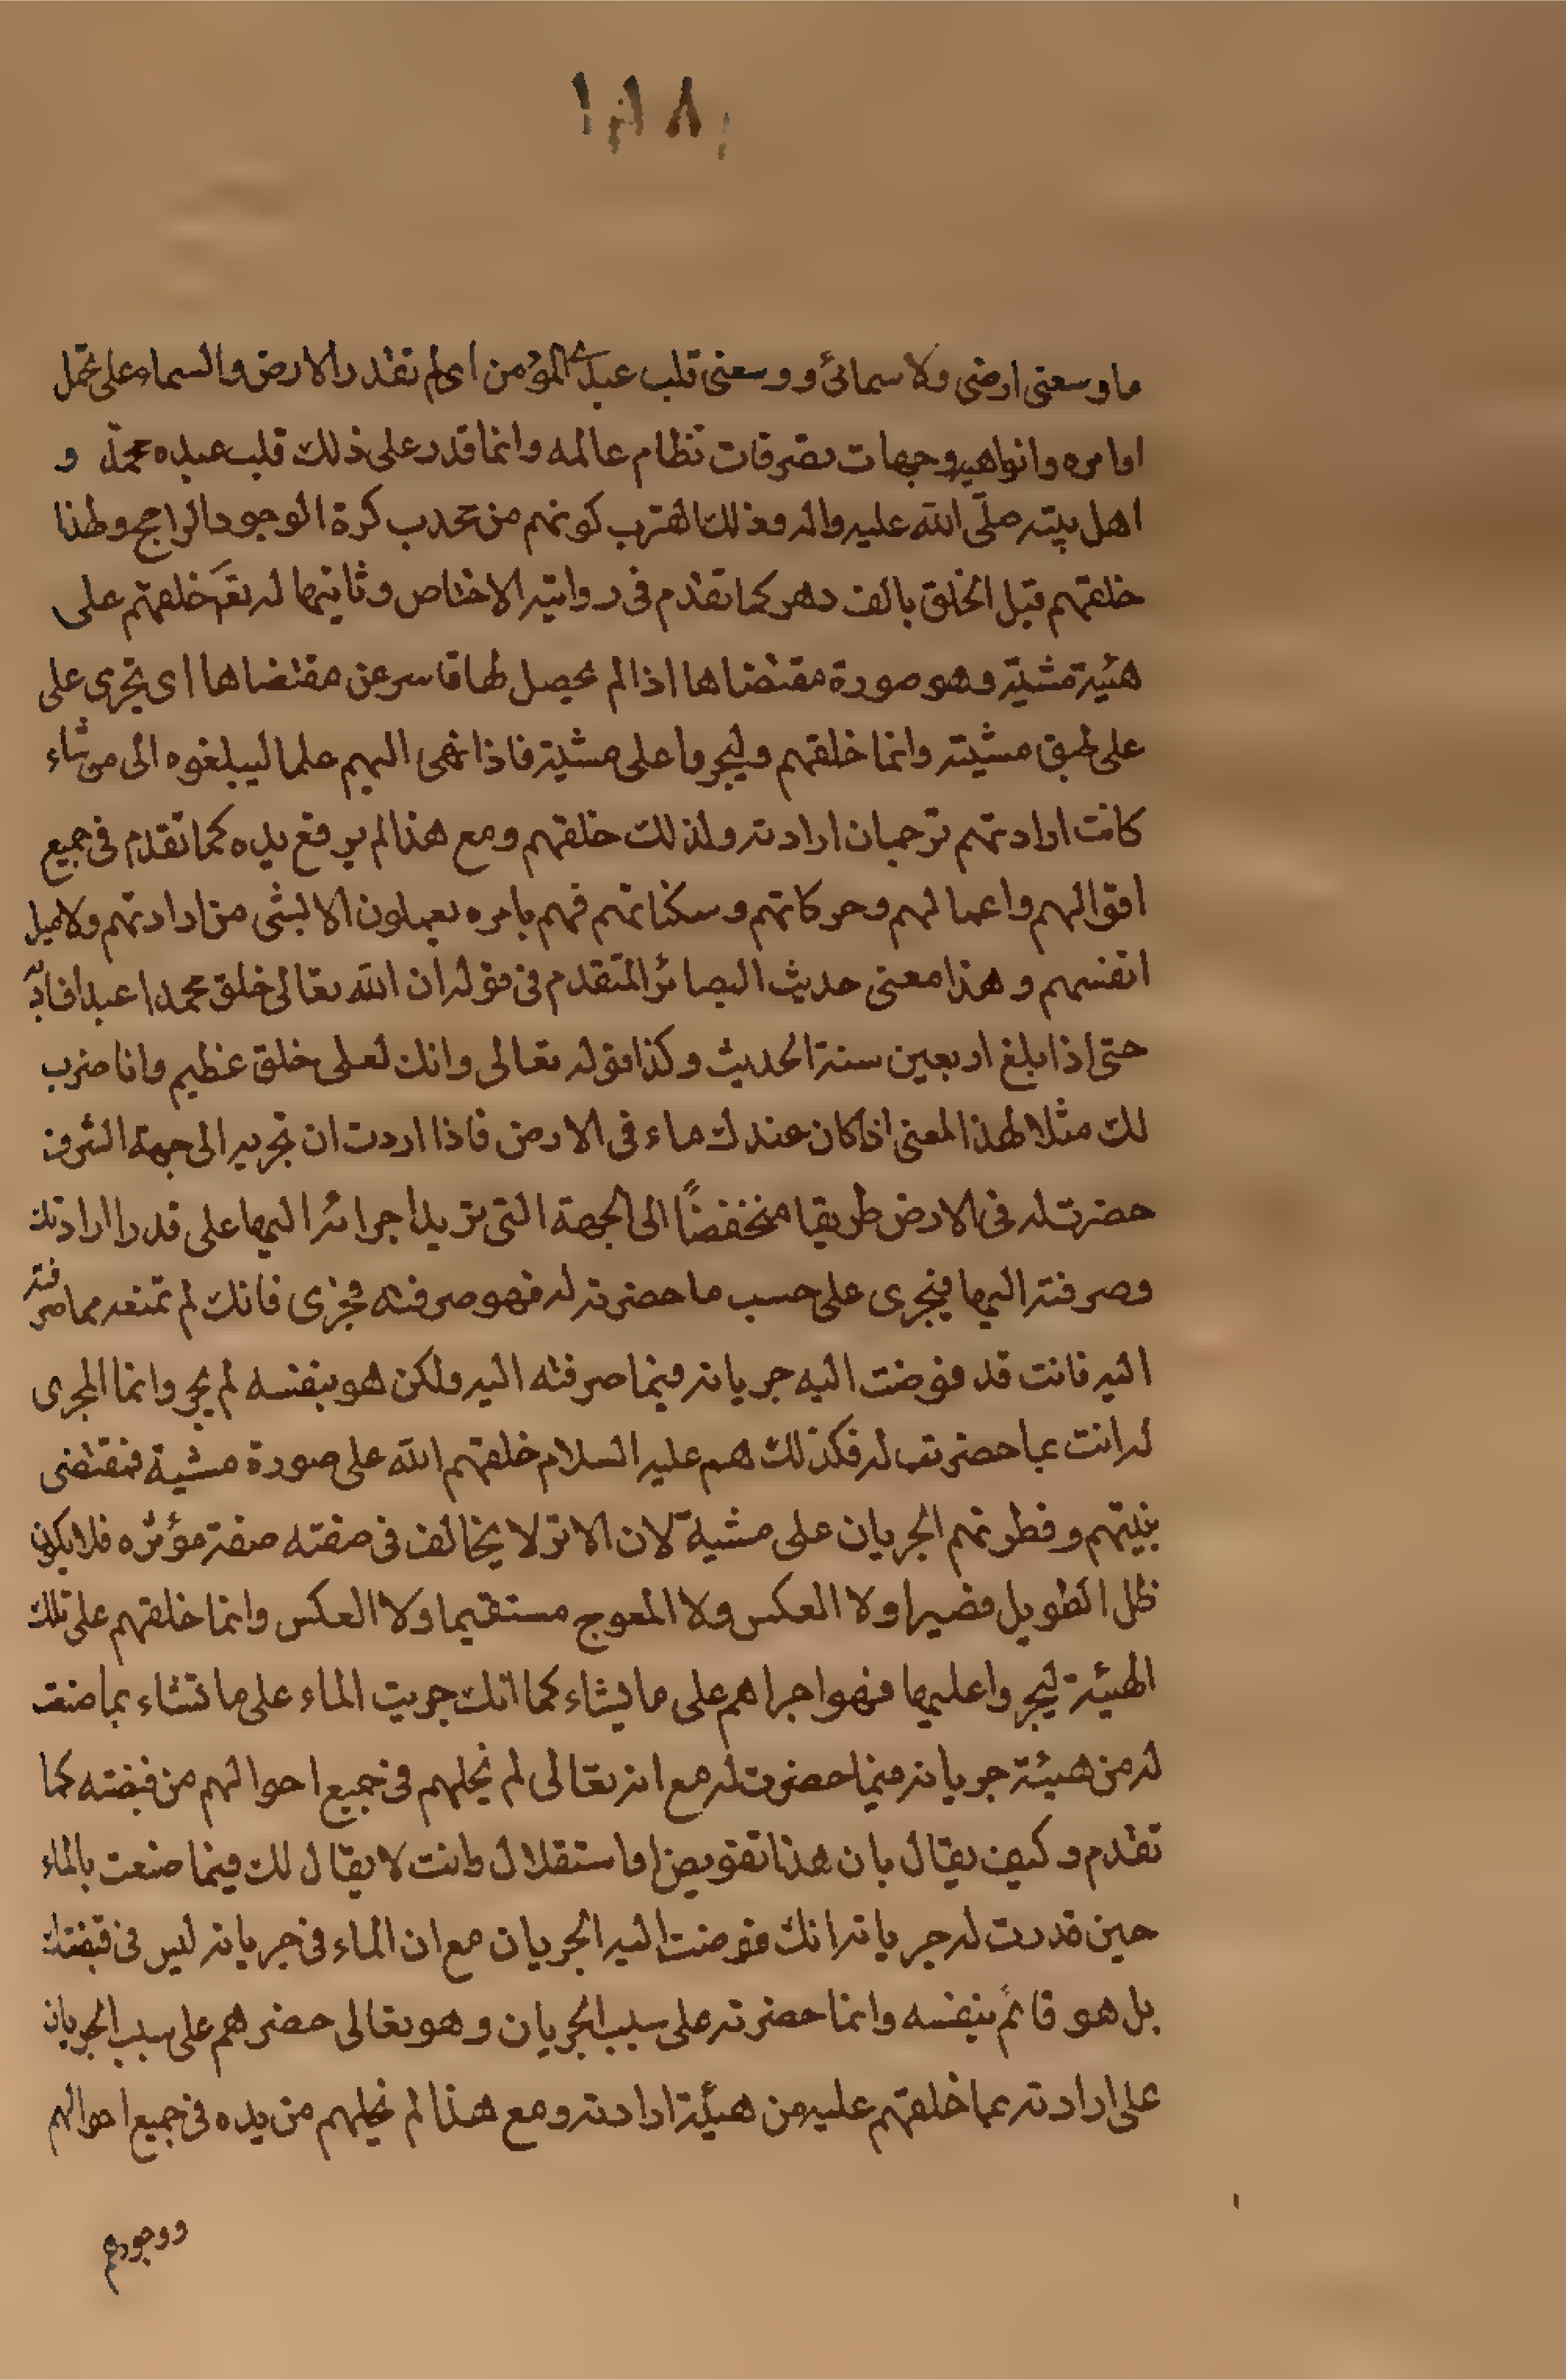 ما وسعنى ارضى ولا سمائى ووسعنى قلب عبدى المؤمن اى لم تقدر الارض والسماء على تحمل
اوامره وانواهيه وجهات تصرفات نظام عالمه وانما قدر على ذلك قلب عبده محمد و
اهل بيته صلّى الله عليه واله وذلك لقرب كونهم من محدب كرة الوجود الراجح ولهذا
خلقهم قبل الخلق بالف دهر كما تقدم فى رواية الاختاص وثانيها انه تعالى خلقهم على
هيئة مشيته وهو صورة مقتضاها اذا لم يحصل لها قاسر عن مقتضاها اى يجرى على
على طبق مشيته وانما خلقهم وليجروا على مشيته فاذا انهى اليهم علما ليبلغوه الى من شاء
كانت ارادتهم ترجمان ارادته ولذلك خلقهم ومع هذا لم يرفع يده كما تقدم فى جميع
اقوالهم واعمالهم وحركاتهم وسكناتهم فهم بامره يعملون الا لبشى من ارادتهم ولا ميل
انفسهم وهذا معنى حديث البصائر المتقدم فى قوله ان الله تعالى خلق محمدا عبدا فادبه
حتى اذا بلغ اربعين سنة الحديث وكذا قوله تعالى وانك لعلى خلق عظيم وانا ضرب
لك مثلا لهذا المعنى اذا كان عندك ماء فى الارض فاذا اردت ان تجريه الى جهة الشرق
حضرت له فى الارض طريقا منخفضاً الى الجهة التى تريد اجرائه اليها على قدر ارادتك
وصرفته اليها فيجرى على حسب ما حضرته له فهو صرفته فجزى فانك لم تمنعه مما صرفته
اليه فانت قد فوضت اليه جريانه فيما صرفته اليه ولكن هو بنفسه لم يجر وانما المجرى
له انت بما حضرته له فكذلك هم عليه السلام خلقهم الله على صورة مشية فمقتضى
بنيتهم وفطرتهم الجريان على مشية لان الاثر لا يخالف فى صفته صفة مؤثره فلا يكون
ظل الطويل قصيرا ولا العكس ولا المعوج مستقيما ولا العكس وانما خلقهم على تلك
الهيئة ليجروا عليها فهو اجراهم على ما يشاء كما انك جريت الماء على ما تشاء بما صنعت
له من هيئة جريانه فيما حضرت له مع انه تعالى لم يخلهم فى جميع احوالهم من قبضته كما
تقدم وكيف يقال بان هذا تفويض او استقلال وانت لا يقال لك فيما صنعت بالماء
حين قدرت له جريانه انك فوضت اليه الجريان مع ان الماء فى جريانه ليس فى قبضتك
بل هو قائم بنفسه وانما حضرته على سبب الجريان وهو تعالى حضرهم على سبب الجريان
على ارادته بما خلقهم عليه من هيئة ارادته ومع هذا لم يخلهم من يده فى جميع احوالهم
ووجودهم